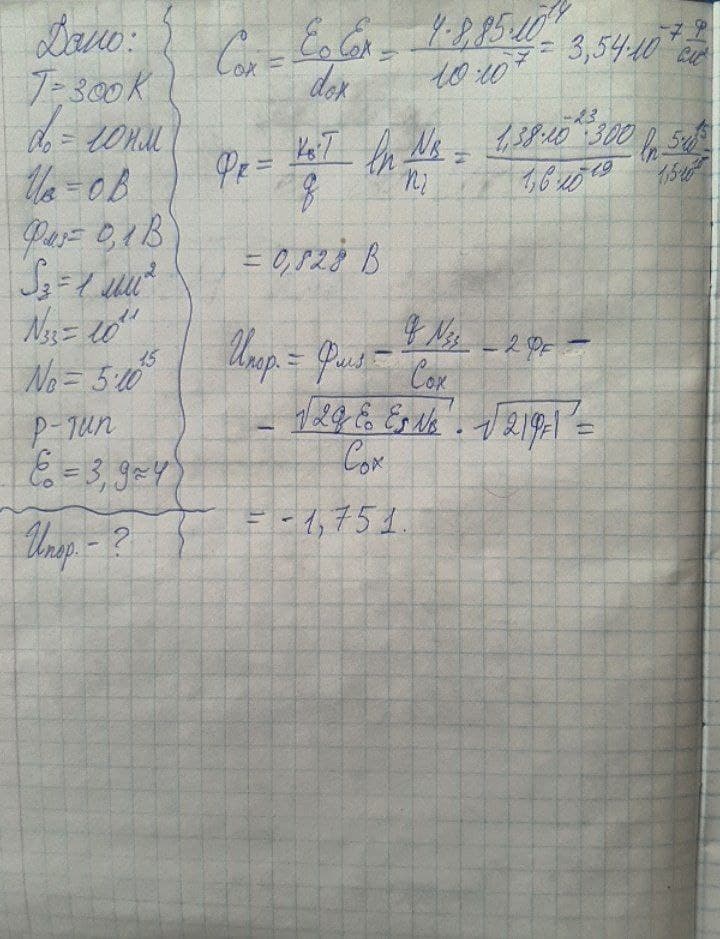 Дано:
T = 300 K
d₀ = 10 нм
Uв = 0 В
φмs = 0,1 В
Sз = 1 мм²
Nзз = 10¹¹
Nв = 5·10¹⁵
p-тип
ε₀ = 3,9 ≈ 4
Uпор. - ?
Cox = ε₀ εox / dox = 4·8,85·10⁻¹⁴ / 10·10⁻⁷ = 3,54·10⁻⁷ Ф/см²
φF = kв·T / q ln Nв / ni = 1,38·10⁻²³·300 / 1,6·10⁻¹⁹ ln 5·10¹⁵ / 1,5·10¹⁰
= 0,828 В
Uпор. = φмs - q Nзз / Cox - 2φF -
- √2q ε₀ εs Nв / Cox · √2|φF| =
= -1,751.